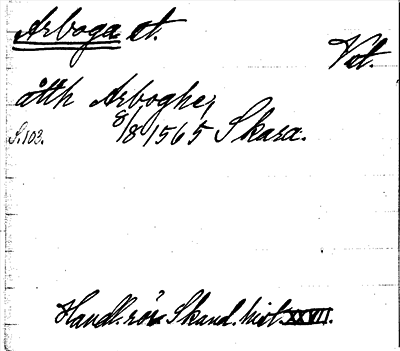 Arboga st.
Vet.
åtth Arboghe,
S. 103. 8/8 1565 Skara.
Handl. rör. Skand. hist. XXVII.